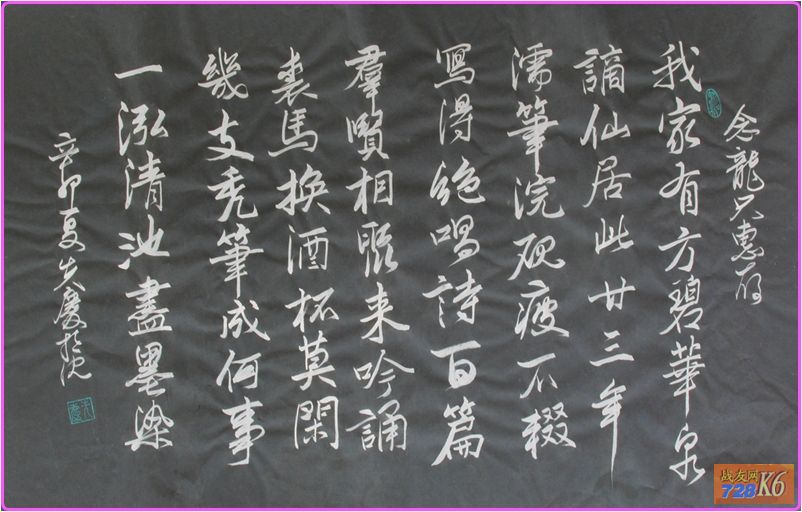 念龍兄惠存
我家有方碧華泉
謫仙居此廿三年
濡筆浣硯疲不輟
寫得絶唱詩百篇
羣賢相聚来吟誦
裘馬換酒杯莫閑
幾支禿筆成何事
一泓清池盡墨染
辛卯夏
战友网
728 K6